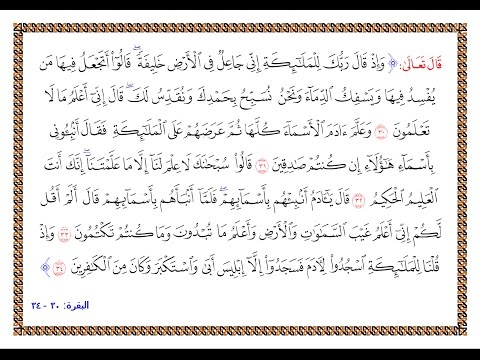 قَالَ تَعَالَى: ﴿ وَإِذْ قَالَ رَبُّكَ لِلْمَلَٰٓئِكَةِ إِنِّى جَاعِلٌ فِى ٱلْأَرْضِ خَلِيفَةً ۖ قَالُوٓا۟ أَتَجْعَلُ فِيهَا مَن
يُفْسِدُ فِيهَا وَيَسْفِكُ ٱلدِّمَآءَ وَنَحْنُ نُسَبِّحُ بِحَمْدِكَ وَنُقَدِّسُ لَكَ ۖ قَالَ إِنِّىٓ أَعْلَمُ مَا لَا
تَعْلَمُونَ ٣٠ وَعَلَّمَ ءَادَمَ ٱلْأَسْمَآءَ كُلَّهَا ثُمَّ عَرَضَهُمْ عَلَى ٱلْمَلَٰٓئِكَةِ فَقَالَ أَنۢبِـُٔونِى
بِأَسْمَآءِ هَٰٓؤُلَآءِ إِن كُنتُمْ صَٰدِقِينَ ٣١ قَالُوا۟ سُبْحَٰنَكَ لَا عِلْمَ لَنَآ إِلَّا مَا عَلَّمْتَنَآ ۖ إِنَّكَ أَنتَ
ٱلْعَلِيمُ ٱلْحَكِيمُ ٣٢ قَالَ يَٰٓـَٔادَمُ أَنۢبِئْهُم بِأَسْمَآئِهِمْ ۖ فَلَمَّآ أَنۢبَأَهُم بِأَسْمَآئِهِمْ قَالَ أَلَمْ أَقُل
لَّكُمْ إِنِّىٓ أَعْلَمُ غَيْبَ ٱلسَّمَٰوَٰتِ وَٱلْأَرْضِ وَأَعْلَمُ مَا تُبْدُونَ وَمَا كُنتُمْ تَكْتُمُونَ ٣٣ وَإِذْ
قُلْنَا لِلْمَلَٰٓئِكَةِ ٱسْجُدُوا۟ لِءَادَمَ فَسَجَدُوٓا۟ إِلَّآ إِبْلِيسَ أَبَىٰ وَٱسْتَكْبَرَ وَكَانَ مِنَ ٱلْكَٰفِرِينَ ٣٤ ﴾
البقرة: ٣٠ - ٣٤